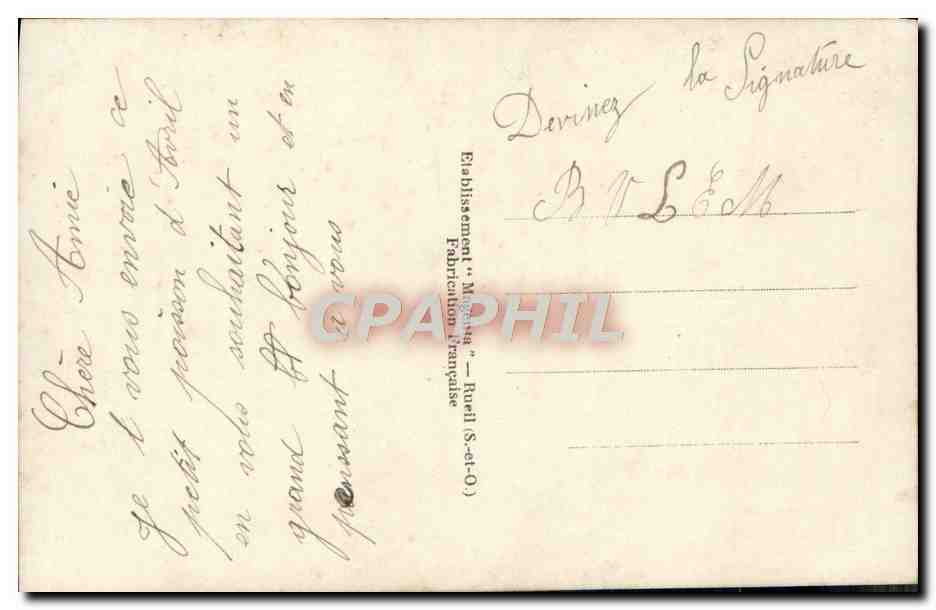 Chère Amie
Je vous envoie ce
petit poisson d'Avril
en vous souhaitant un
grand bonjour et en
penssant a vous
Etablissement "Magenta" — Rueil (S.-et-O.)
Fabrication Française
Devinez la Signature
R V L E M
CPAPHIL